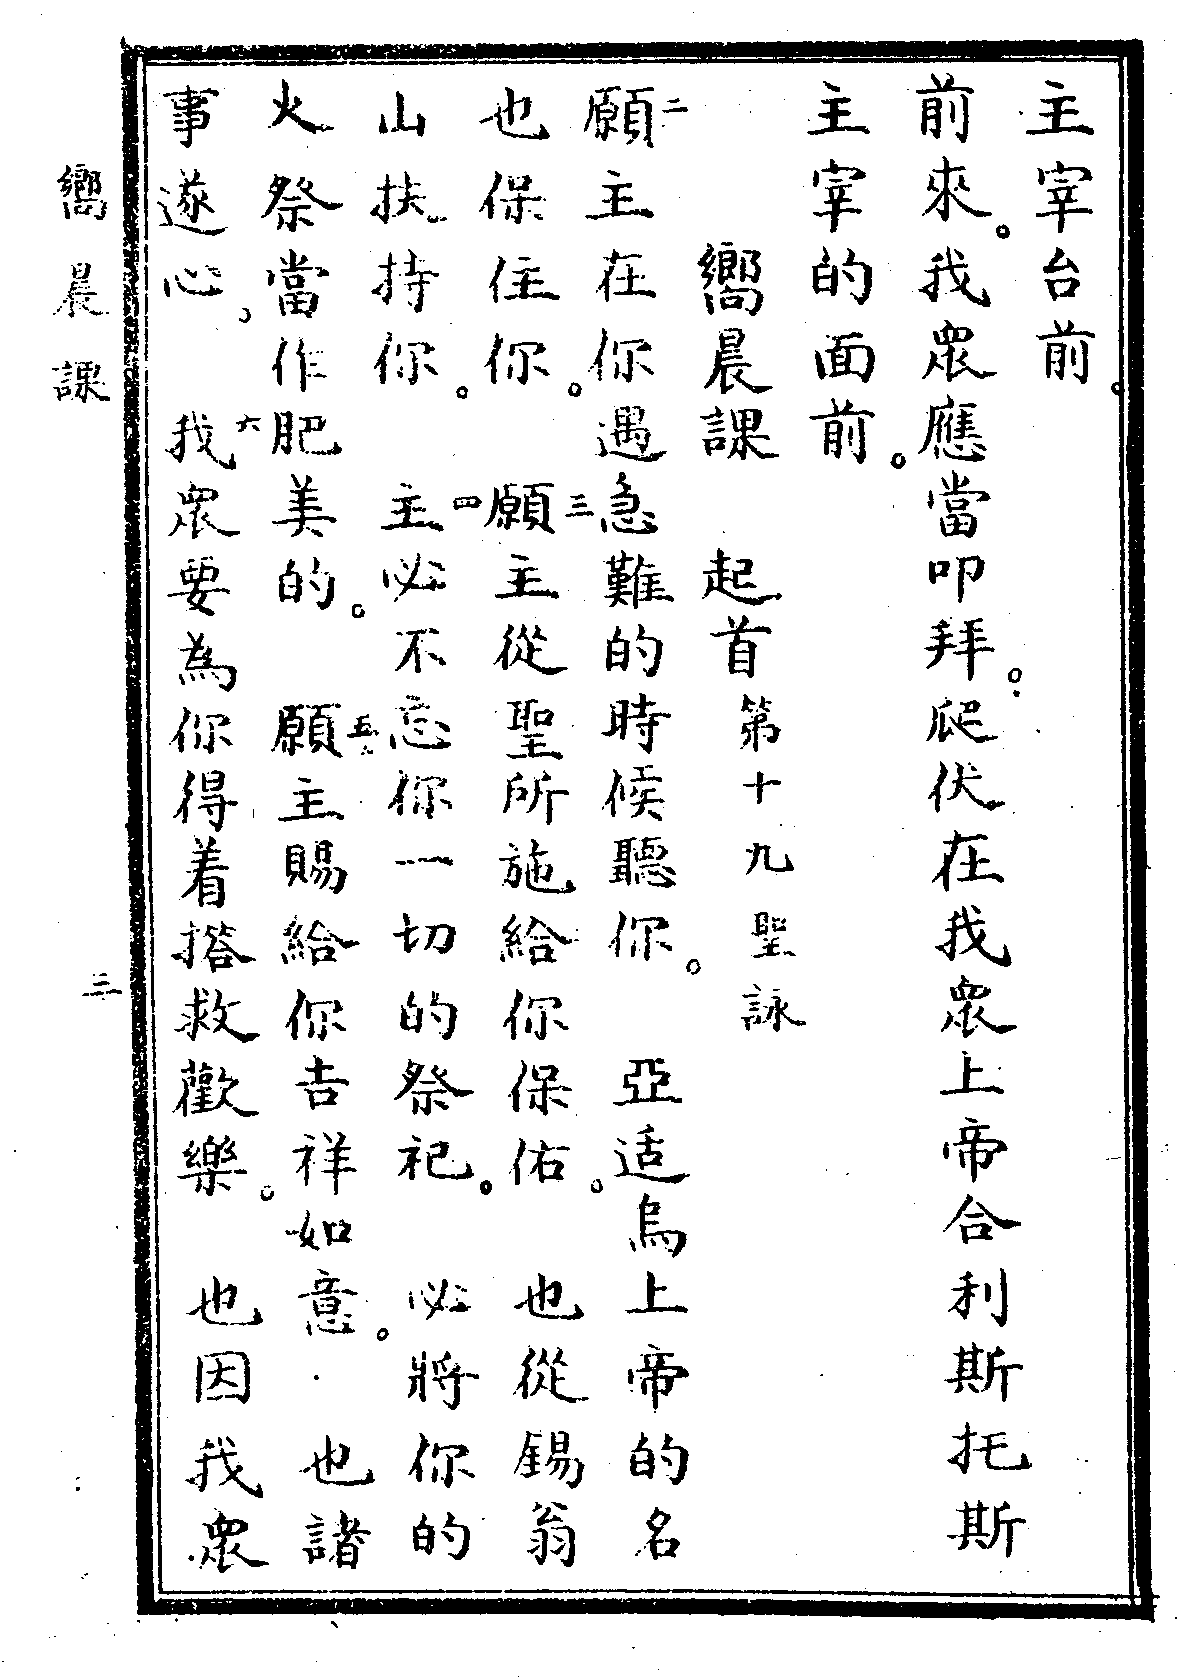 主宰台前。
前來。我衆應當叩拜。爬伏在我衆上帝合利斯托斯
主宰的面前。
嚮晨課 起首 第十九聖詠
二願主在你遇急難的時候聽你。 亞适烏上帝的名
也保住你。 三願主從聖所施給你保佑。 也從錫翁
山扶持你。 四主必不忘你一切的祭祀。 必將你的
火祭當作肥美的。 五願主賜給你吉祥如意。 也諸
事遂心。 六我衆要為你得着搭救歡樂。 也因我衆
嚮晨課 三